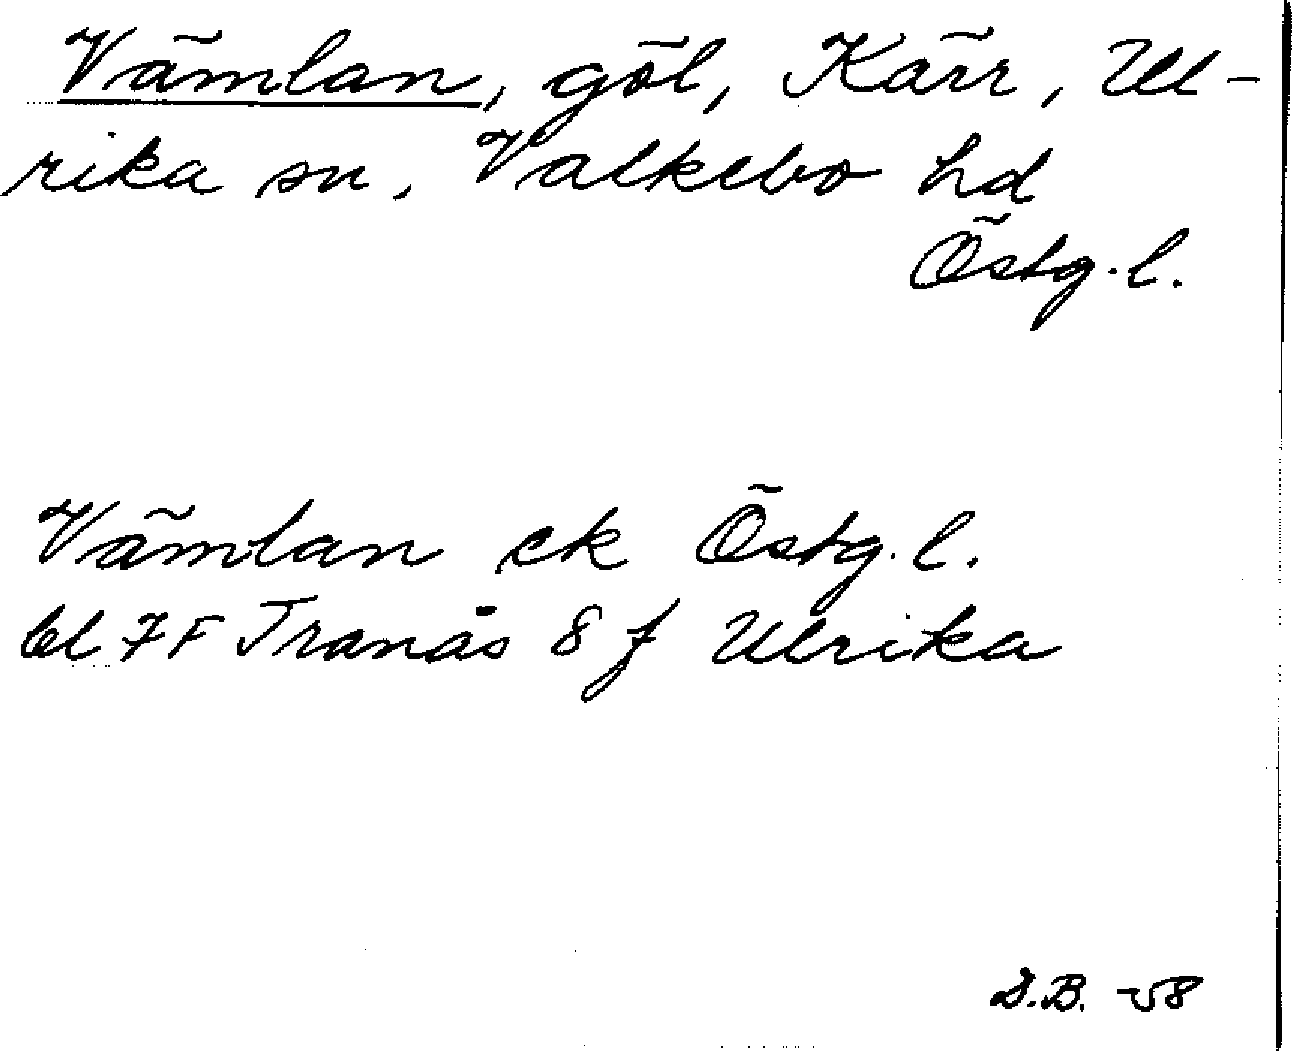 Vämlan, göl, Kärr, Ul-
rika sn, Valkebo hd
Östg. l.
Vämlan ek Östg. l.
bl 7F Tranås 8 f Ulrika
D.B. -58